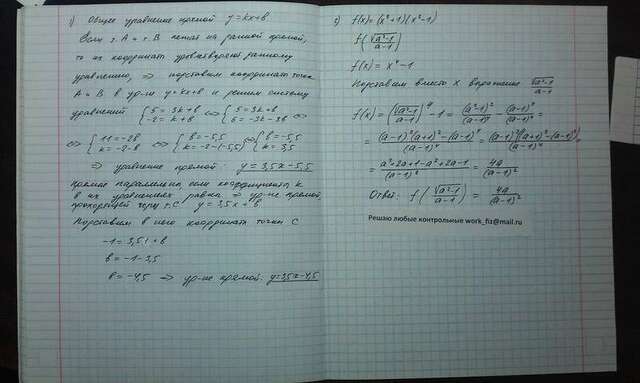 1) Общее уравнение прямой y=kx+b
Если т. A и т. B лежат на данной прямой,
то их координаты удовлетворяют данному
уравнению, ⇒ подставим координаты точек
A и B в ур-ие y=kx+b и решим систему
уравнений { 5=3k+b ⇔ { 5=3k+b ⇔
{ -2=k+b { 6=-3k-3b
⇔ { 11=-2b ⇔ { b=-5,5 ⇔ { b=-5,5
{ k=-2-b { k=-2-(-5,5) { k=3,5
⇒ уравнение прямой: y=3,5x-5,5
Прямые параллельны, если коэффициенты k
в их уравнениях равны ⇒ ур-ие прямой,
проходящей через т. C y=3,5x+b
Подставим в него координаты точки C
-1=3,5·1+b
b=-1-3,5
b=-4,5 ⇒ ур-ие прямой: y=3,5x-4,5
2) f(x)=(x²+1)(x²-1)
f(√(a²-1)/(a-1))
f(x)=x⁴-1
Подставим вместо x выражение √(a²-1)/(a-1)
f(x)=(√(a²-1)/(a-1))⁴-1=(a²-1)²/(a-1)⁴-(a-1)⁴/(a-1)⁴=
=((a-1)²(a+1)²-(a-1)⁴)/(a-1)⁴=(a-1)²((a+1)²-(a-1)²)/(a-1)⁴=
=(a²+2a+1-a²+2a-1)/(a-1)²=4a/(a-1)²
Ответ: f(√(a²-1)/(a-1))=4a/(a-1)²
Решаю любые контрольные work_fiz@mail.ru